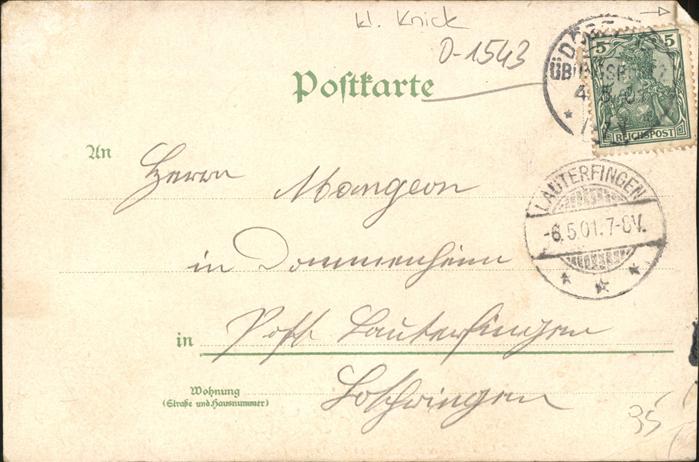 kl. Knick
D-1543
Postkarte
5 5
REICHSPOST
An
Herrn Mangeon
LAUTERFINGEN
-6.5.01.7-8V.
in Dommenheim
in Post Lauterfingen
Wohnung
(Straße und Hausnummer)
Lothringen
35